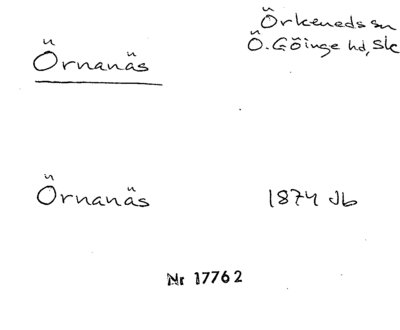 Örkeneds sn
Örnanäs Ö. Göinge hd, Sk
Örnanäs 1874 Jb
Nr 17762